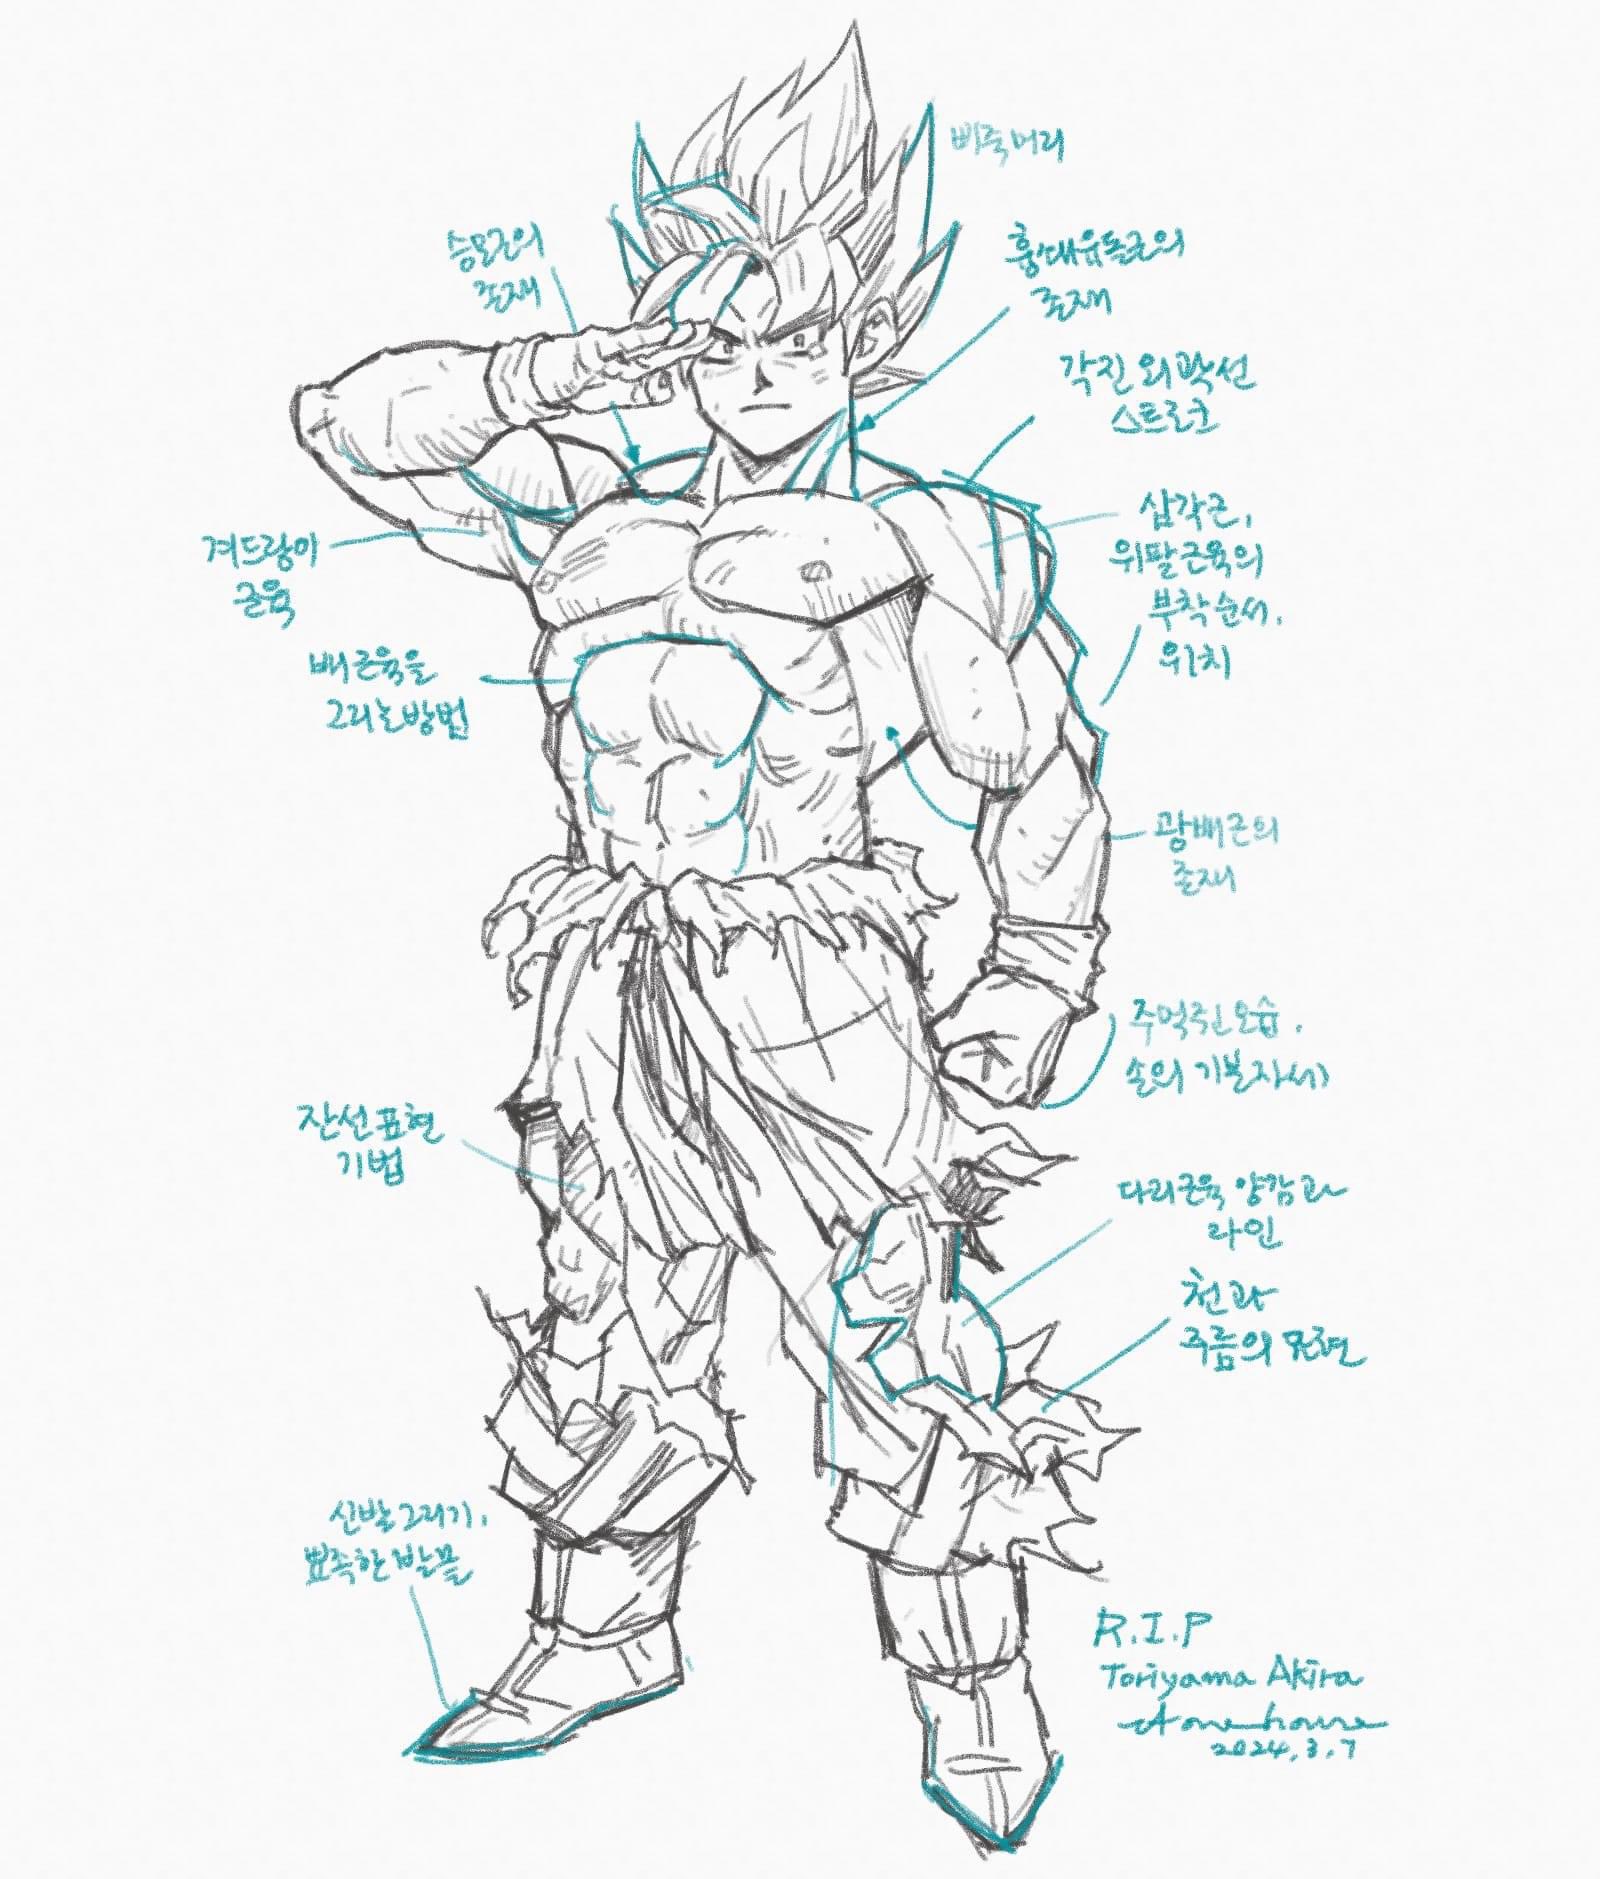 삐죽머리
승모근의
존재
흉쇄유돌근의
존재
각진 외곽선
스트로크
삼각근,
위팔근육의
부착순서,
위치
겨드랑이
근육
배근육을
그리는 방법
광배근의
존재
주먹쥔모습,
손의 기본자세
잔선표현
기법
다리근육 양감과
라인
천과
주름의 묘현
신발그리기,
뾰족한발끝
R.I.P
Toriyama Akira
2024.3.7